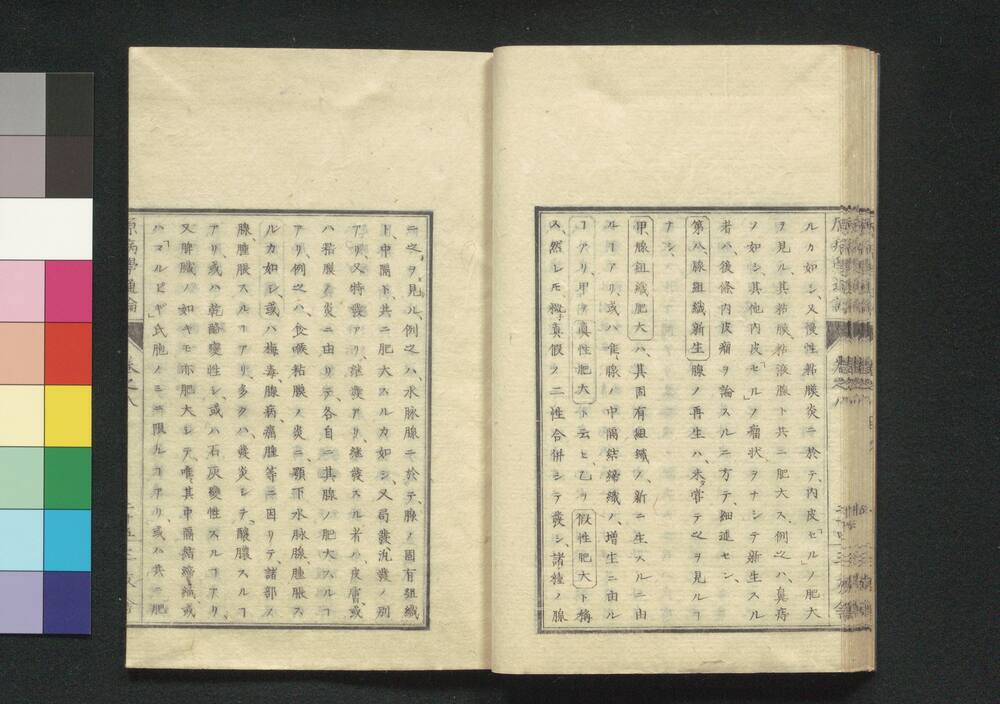 ルカ如シ、又慢性粘膜炎ニ於テ、内皮「セル」ノ肥大
ヲ見ル、其粘膜、粘液腺ト共ニ肥大ス、例之ハ、鼻痔
ノ如シ、其他内皮「セル」ノ瘤状ヲナシテ新生スル
者ハ、後條内皮瘤ヲ論スルニ方テ、細述セン、
第八、腺組織新生 腺ノ再生ハ、未タ嘗テ之ヲ見ルヿ
ナシ、
甲、腺組織肥大 ハ、其固有組織ノ、新ニ生スルニ由
ルヿアリ、或ハ唯、腺ノ中隔結締織ノ、増生ニ由ル
ヿアリ、甲ヲ 真性肥大 ト云ヒ、乙ヲ 假性肥大 ト稱
ス、然レモ概子真假ノ二性合併シテ發シ、諸種ノ腺
原病學通論
巻之八
三
ニ之ヲ見ル、例之ハ、水脉腺ニ於テ、腺ノ固有組織
ト、中隔ト、共ニ肥大スルカ如シ、又局發汎發ノ別
アリ、又特發アリ、継發アリ、継發スル者ハ、皮膚或
ハ粘膜ノ炎ニ由リテ、各自ニ其腺ノ肥大スルヿ
アリ、例之ハ、食喉粘膜ノ炎ニ、顎下水脉腺、腫脹ス
ルカ如シ、或ハ梅毒、腺病、癌腫等ニ因リテ、諸部ノ
腺、腫脹スルヿアリ、多クハ發炎シテ、醸膿スルヿ
アリ、或ハ乾酪變性シ、或ハ石灰變性スルヿアリ、
又脾臓ノ如キモ亦肥大シテ、唯、其中隔結締織、或
ハ「マルピギ」氏胞ノミニ限ルヿアリ、或ハ共ニ肥
原病學通論
巻之八